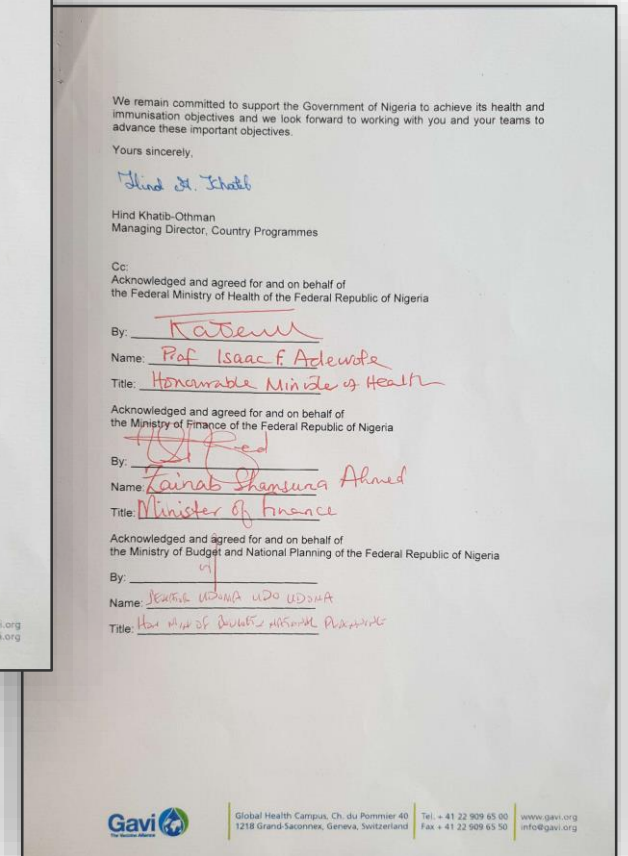 We remain committed to support the Government of Nigeria to achieve its health and
immunisation objectives and we look forward to working with you and your teams to
advance these important objectives.
Yours sincerely,
Hind A. Khatib
Hind Khatib-Othman
Managing Director, Country Programmes
Cc:
Acknowledged and agreed for and on behalf of
the Federal Ministry of Health of the Federal Republic of Nigeria
By:
Name: Prof Isaac F. Adewole
Title: Honourable Minister of Health
Acknowledged and agreed for and on behalf of
the Ministry of Finance of the Federal Republic of Nigeria
By:
Name: Zainab Shamsuna Ahmed
Title: Minister of Finance
Acknowledged and agreed for and on behalf of
the Ministry of Budget and National Planning of the Federal Republic of Nigeria
By:
Name: SENATOR UDOMA UDO UDOMA
Title: Hon Min of Budget & National Planning
i.org
i.org
Gavi
The Vaccine Alliance
Global Health Campus, Ch. du Pommier 40
1218 Grand-Saconnex, Geneva, Switzerland
Tel. + 41 22 909 65 00
Fax + 41 22 909 65 50
www.gavi.org
info@gavi.org